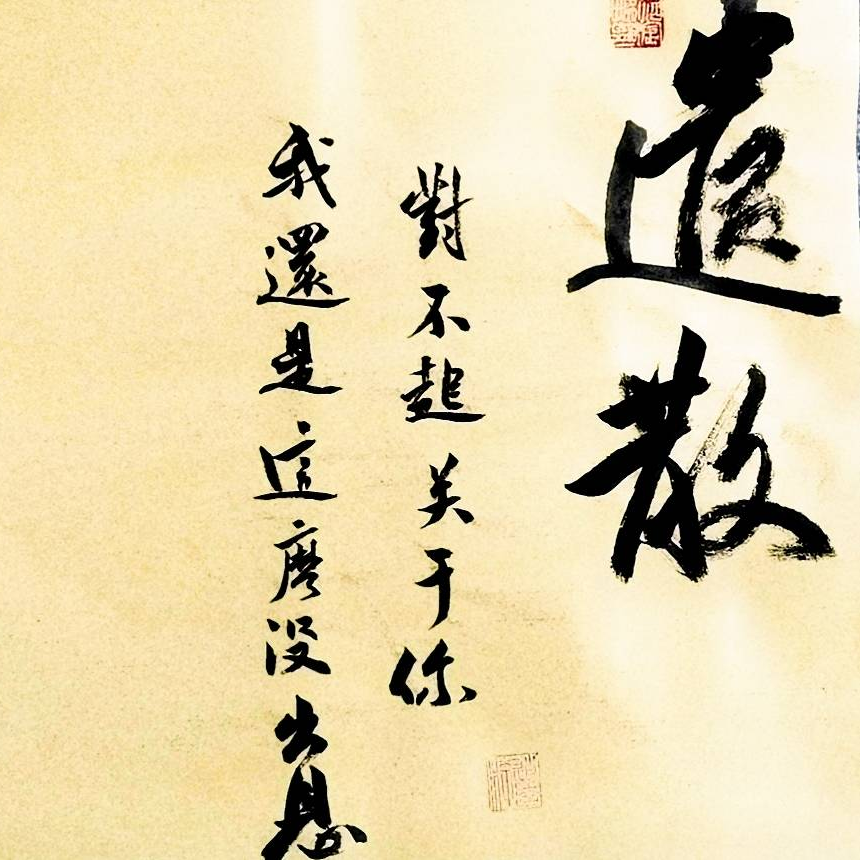 遣散
對不起关于你
我還是這麽没出息